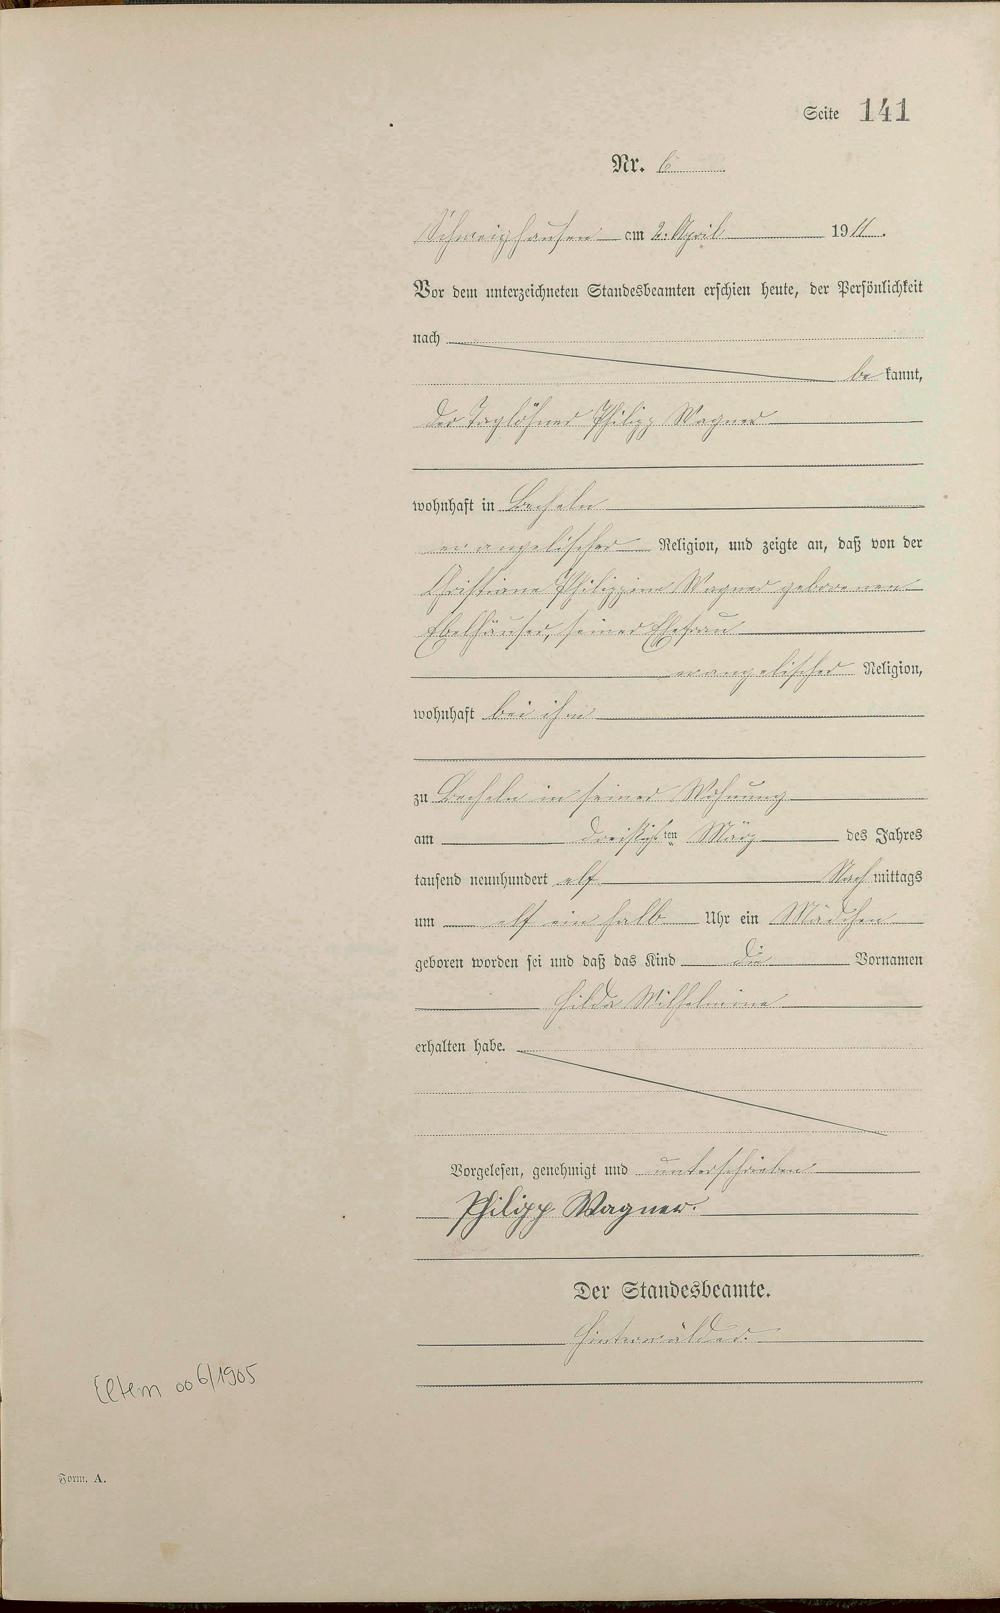 Seite 141
Nr. 6
Schweighausen am 2. April 1911.
Vor dem unterzeichneten Standesbeamten erschien heute, der Persönlichkeit
nach
be kannt,
der Taglöhner Philipp Wagner
wohnhaft in Becheln
evangelischer Religion, und zeigte an, daß von der
Christiane Philippine Wagner geborenen
Ebelhäuser, seiner Ehefrau
evangelischer Religion,
wohnhaft bei ihm
zu Becheln in seiner Wohnung
am dreißigsten März des Jahres
tausend neunhundert elf Nachmittags
um elf ein halb Uhr ein Mädchen
geboren worden sei und daß das Kind die Vornamen
Hilda Wilhelmine
erhalten habe.
Vorgelesen, genehmigt und unterschrieben
Philipp Wagner.
Der Standesbeamte.
Hinterwälder.
Eltern ∞ 6/1905
Form. A.